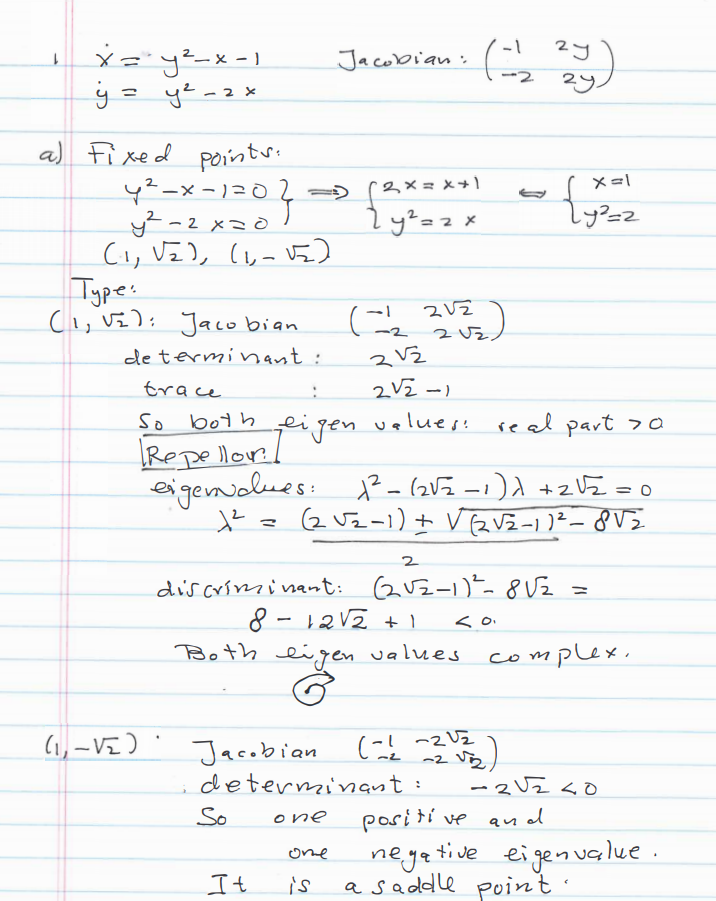 1 ẋ = y² - x - 1 Jacobian: (-1 2y
ẏ = y² - 2x -2 2y)
a) Fixed points:
y² - x - 1 = 0 } ⟹ { 2x = x+1 ⟺ { x = 1
y² - 2x = 0 y² = 2x y² = 2
(1, √2), (1, -√2)
Type:
(1, √2): Jacobian (-1 2√2
-2 2√2)
determinant: 2√2
trace : 2√2 - 1
So both eigen values: real part > 0
Repellor!
eigenvalues: λ² - (2√2 - 1)λ + 2√2 = 0
λ² = (2√2 - 1) ± √(2√2 - 1)² - 8√2
2
discriminant: (2√2 - 1)² - 8√2 =
8 - 12√2 + 1 < 0.
Both eigen values complex.
(1, -√2): Jacobian (-1 -2√2
-2 -2√2)
determinant: -2√2 < 0
So one positive and
one negative eigenvalue.
It is a saddle point.